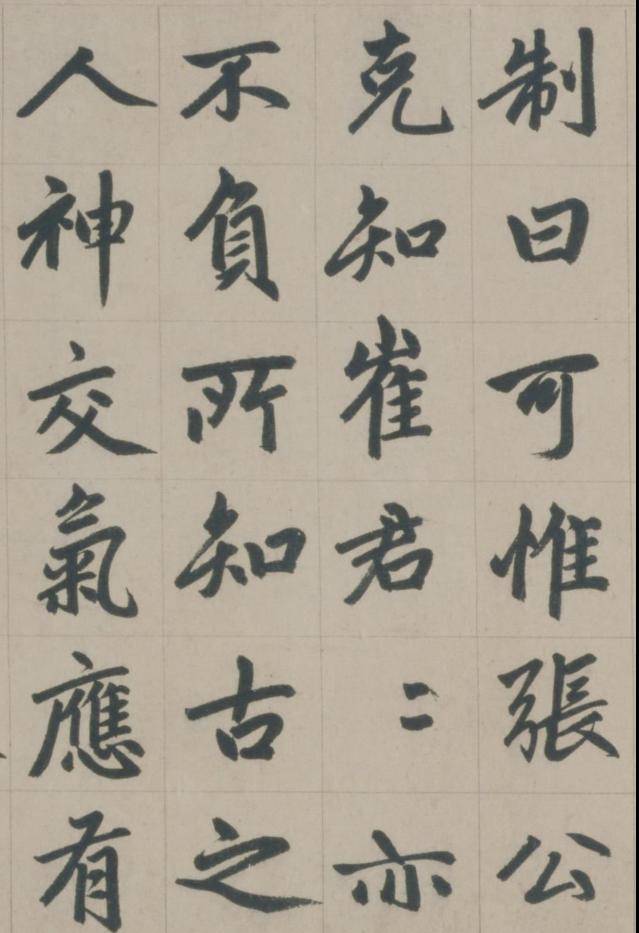 制曰可惟張公
克知崔君〻亦
不負所知古之
人神交氣應有